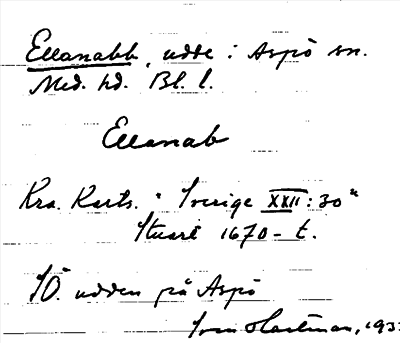 Ellanabb, udde i Aspö sn.
Med. hd. Bl. l.
Ellanab
Kra. Kartv. "Sverige XXII:30"
Stuart 1670-t.
SÖ. udden på Aspö
Sven Hartman, 193